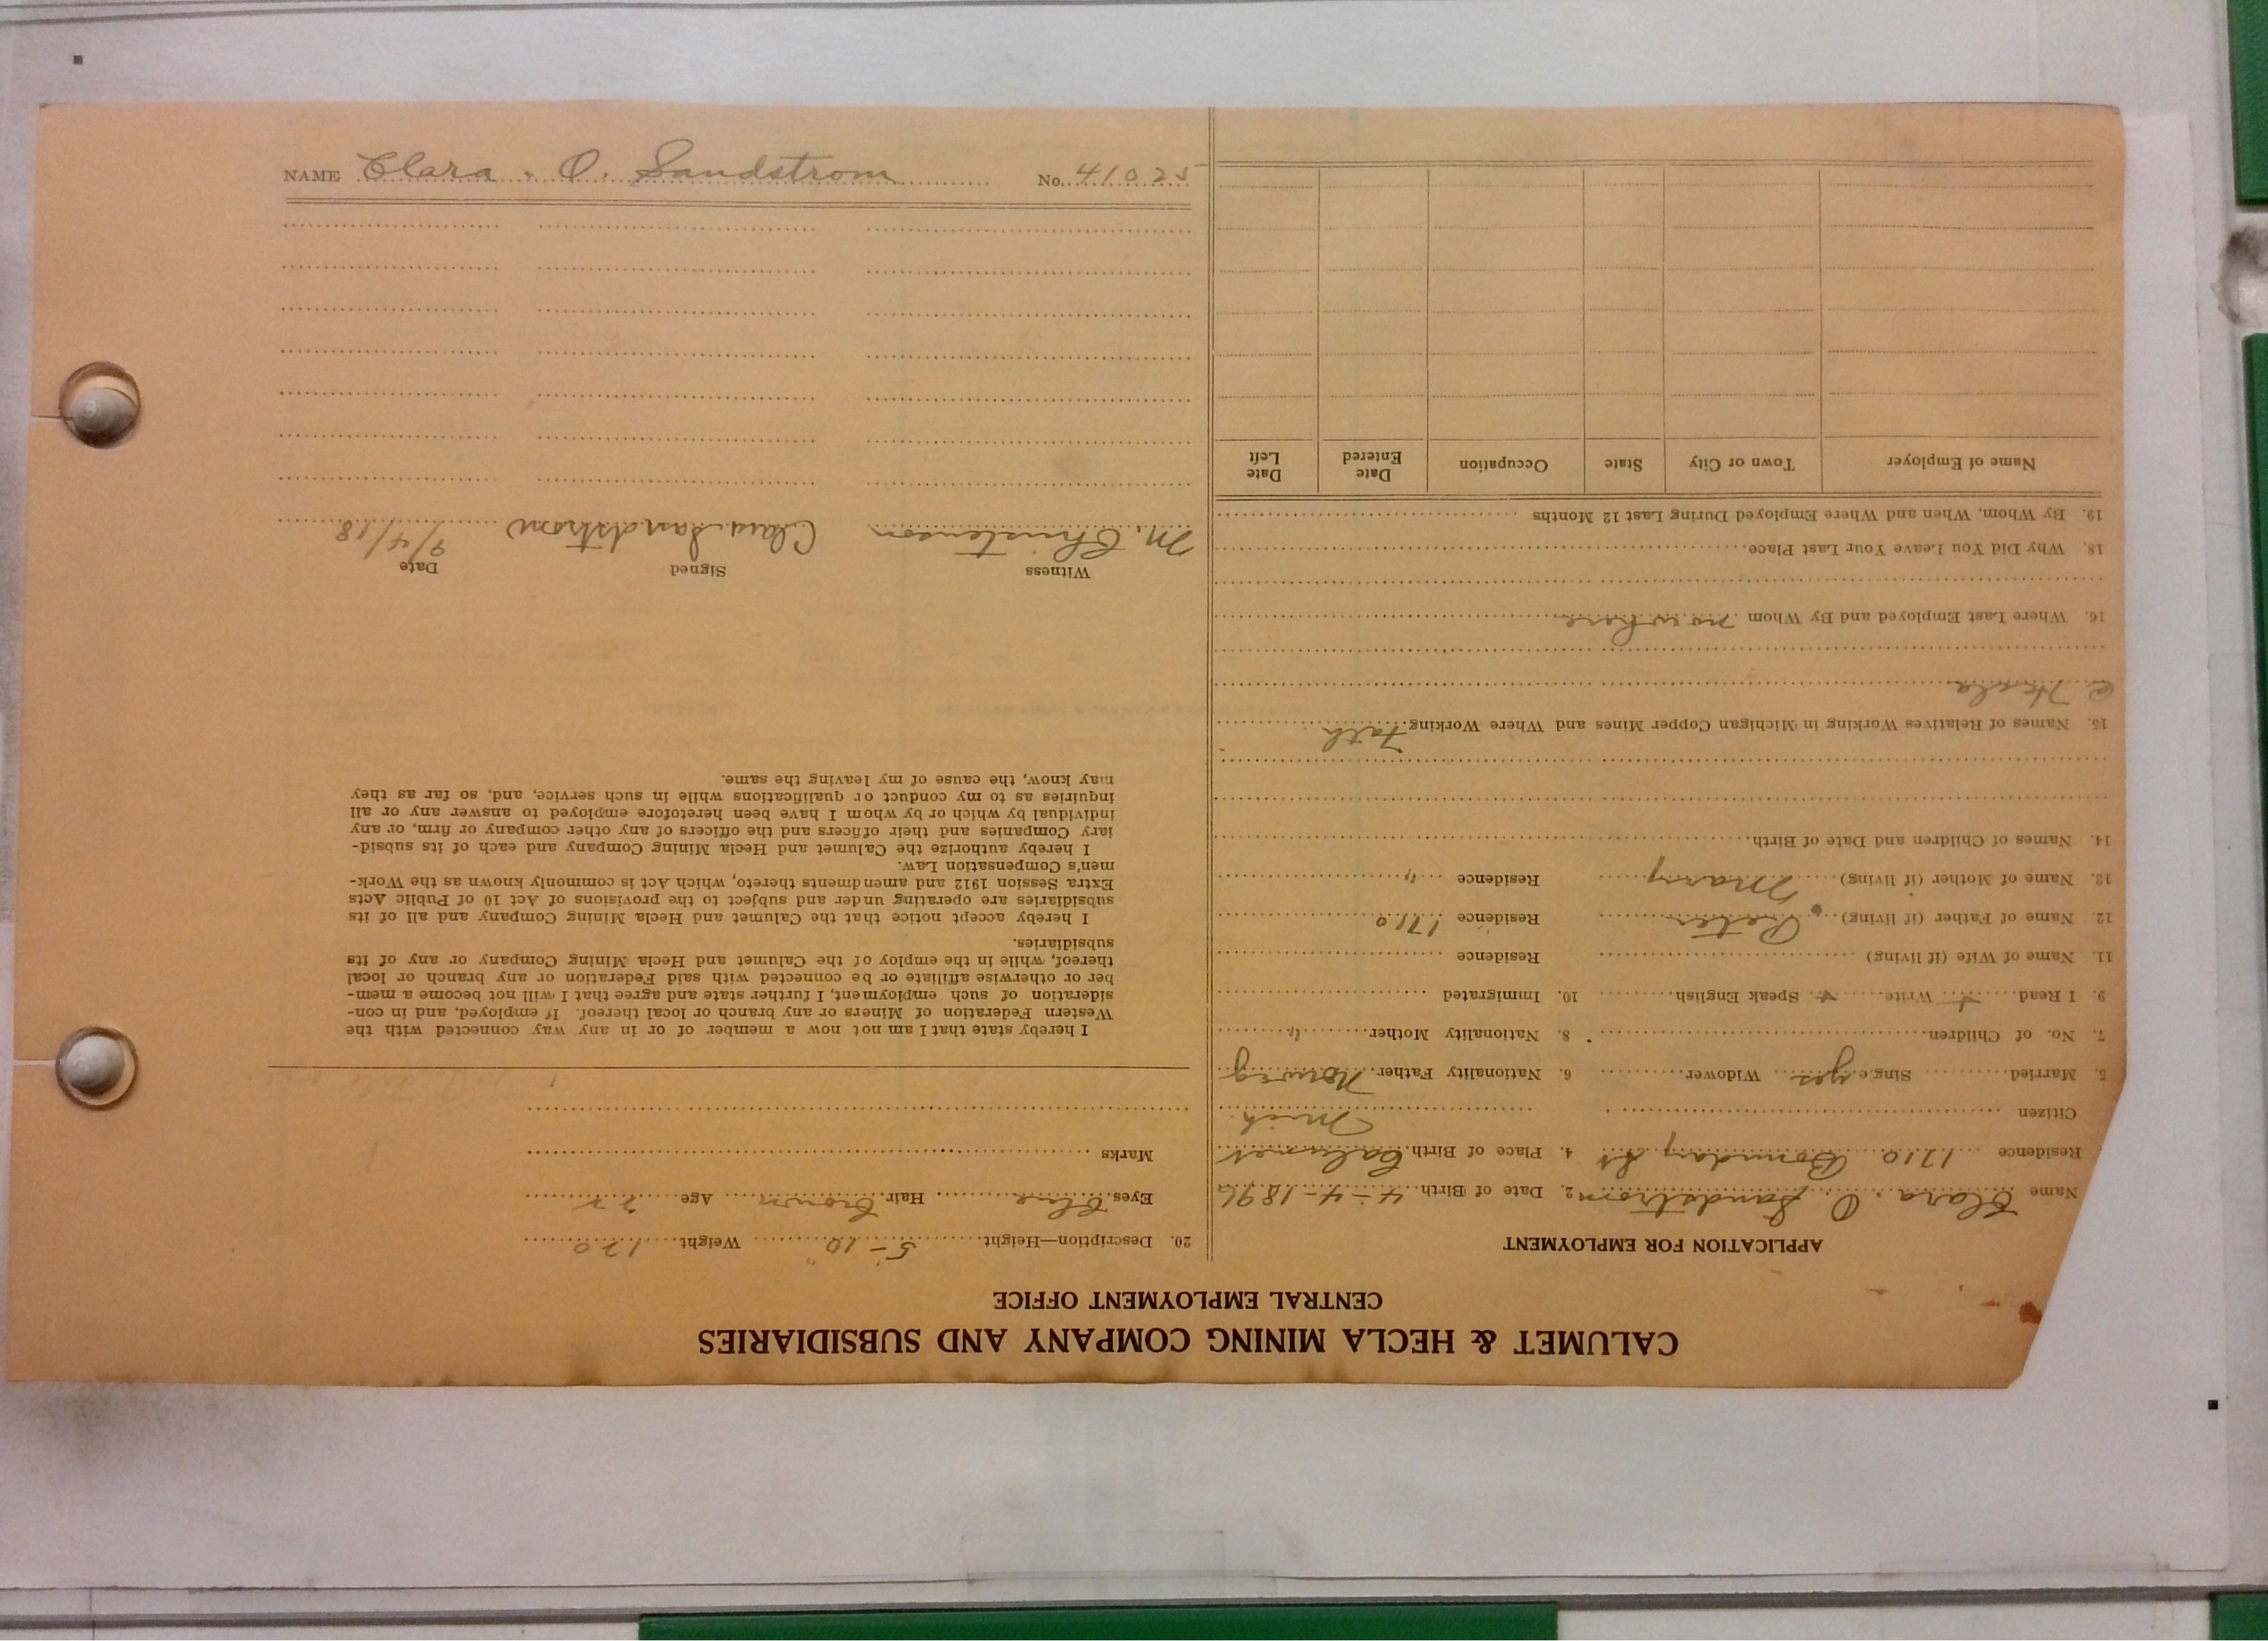 CALUMET & HECLA MINING COMPANY AND SUBSIDIARIES
CENTRAL EMPLOYMENT OFFICE
APPLICATION FOR EMPLOYMENT
Name Clara. O. Sandstrom 2. Date of Birth. 4-4-1896
Residence 1710 Boundary St 4. Place of Birth. Calumet
Citizen Mich
5. Married Single yes Widower 6. Nationality Father Norweg
7. No. of Children 8. Nationality Mother "
9. I Read Write Speak English 10. Immigrated
11. Name of Wife (if living) Residence
12. Name of Father (if living) Peter Residence 1710
13. Name of Mother (if living) Mary Residence "
14. Names of Children and Date of Birth
15. Names of Relatives Working in Michigan Copper Mines and Where Working Fath
Hecla
16. Where Last Employed and By Whom no where
18. Why Did You Leave Your Last Place
19. By Whom, When and Where Employed During Last 12 Months
Name of Employer Town or City State Occupation Date Entered Date Left
20. Description—Height 5-10" Weight 120
Eyes Blue Hair brown Age 22
Marks
I hereby state that I am not now a member of or in any way connected with the
Western Federation of Miners or any branch or local thereof. If employed, and in con-
sideration of such employment, I further state and agree that I will not become a mem-
ber or otherwise affiliate or be connected with said Federation or any branch or local
thereof, while in the employ of the Calumet and Hecla Mining Company or any of its
subsidiaries.
I hereby accept notice that the Calumet and Hecla Mining Company and all of its
subsidiaries are operating under and subject to the provisions of Act 10 of Public Acts
Extra Session 1912 and amendments thereto, which Act is commonly known as the Work-
men's Compensation Law.
I hereby authorize the Calumet and Hecla Mining Company and each of its subsid-
iary Companies and their officers and the officers of any other company or firm, or any
individual by which or by whom I have been heretofore employed to answer any or all
inquiries as to my conduct or qualifications while in such service, and, so far as they
may know, the cause of my leaving the same.
Witness Signed Date
M. Christenson Clara Sandstrom 9/4/18
NAME Clara. O. Sandstrom No. 41025